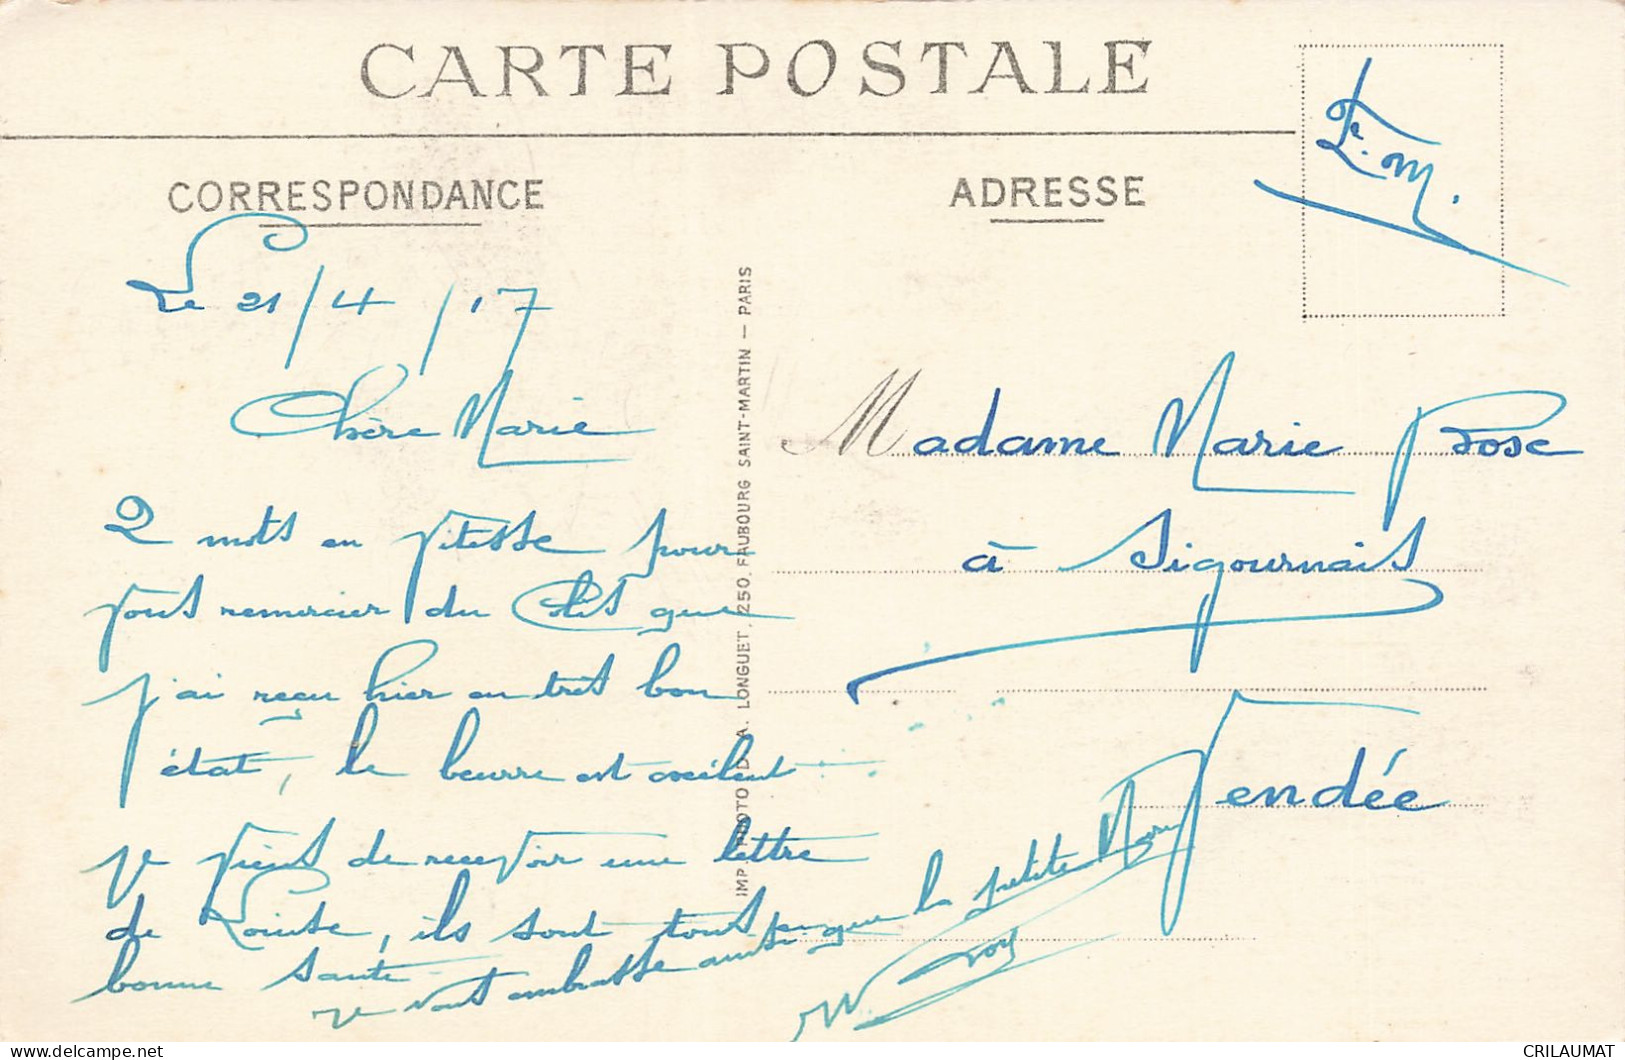 CARTE POSTALE
F.M.
CORRESPONDANCE
ADRESSE
Le 21/4/17
Chère Marie
2 mots en vitesse pour
vous remercier du Colis que
j'ai reçu hier en très bon
état, le beurre est exélent
je viens de recevoir une lettre
de Louise, ils sont tous en
bonne santé
je vous embrasse ainsi que la petite
Madame Marie
à Sigournais
Vendée
IMP. PHOTO D. A. LONGUET. 250. FAUBOURG SAINT-MARTIN — PARIS
CRILAUMAT